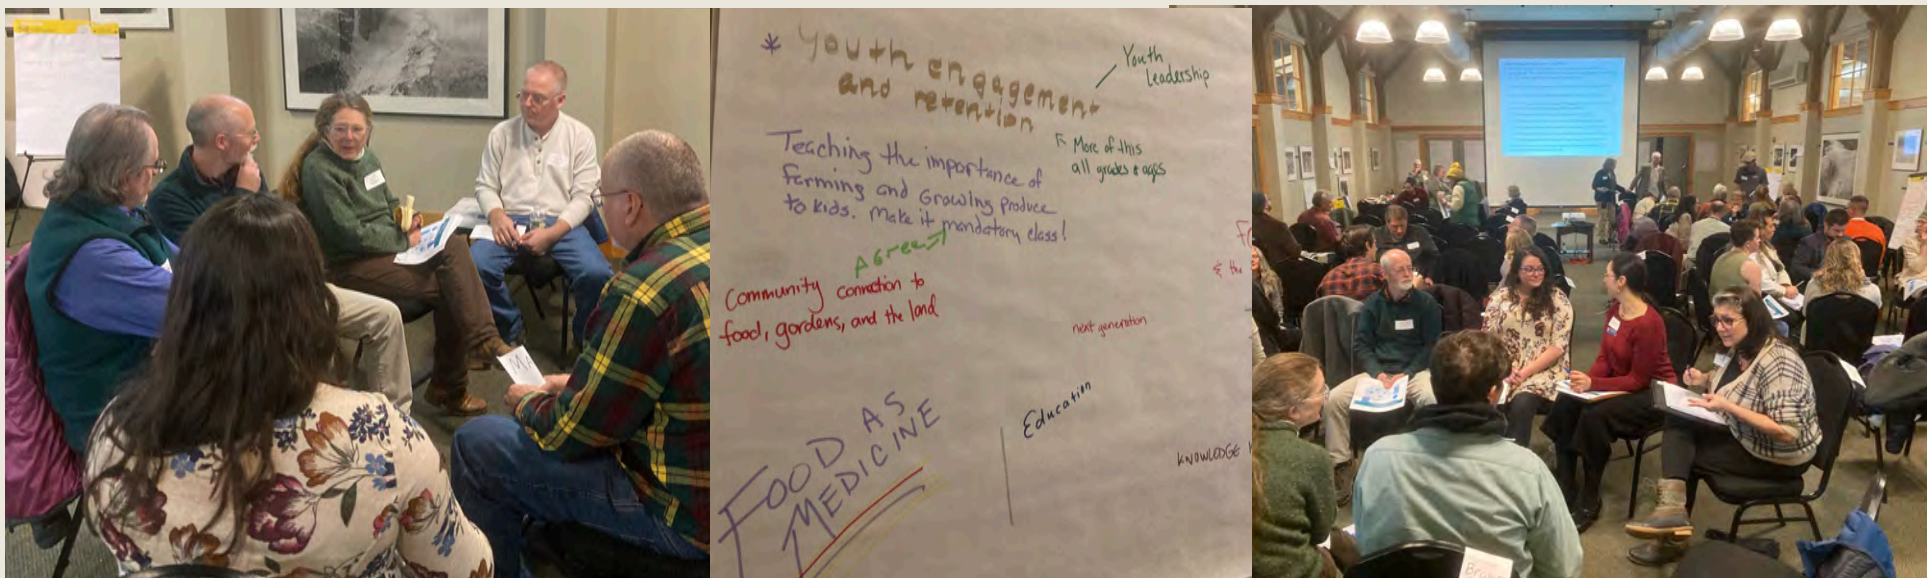 * Youth engagement
and retention
Youth
Leadership
More of this
all grades & ages
Teaching the importance of
farming and growing produce
to kids. Make it mandatory class!
Agree
Community connection to
food, gardens, and the land
next generation
FOOD AS
MEDICINE
Education
KNOWLEDGE
& the